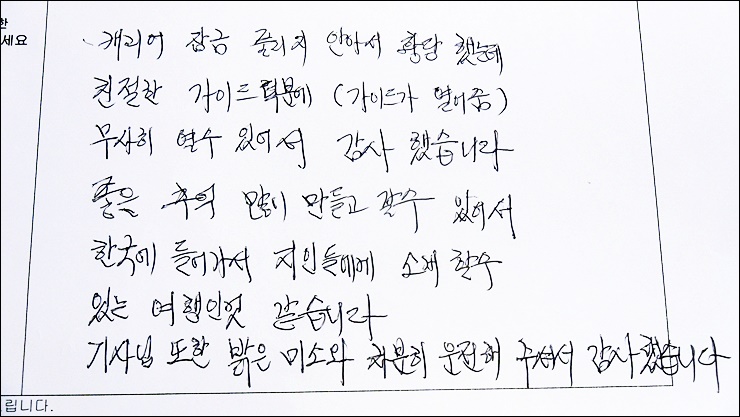 한
세요
캐리어 잠금 풀리지 안아서 황당 했는데
친절한 가이드 때문에 (가이드가 열어줌)
무사히 열수 있어서 감사 했습니다
좋은 추억 많이 만들고 갈수 있어서
한국에 들어가서 지인들에게 소개 할수
있는 여행인것 같습니다
기사님 또한 밝은 미소와 차분히 운전해 주셔서 감사 했습니다
립니다.